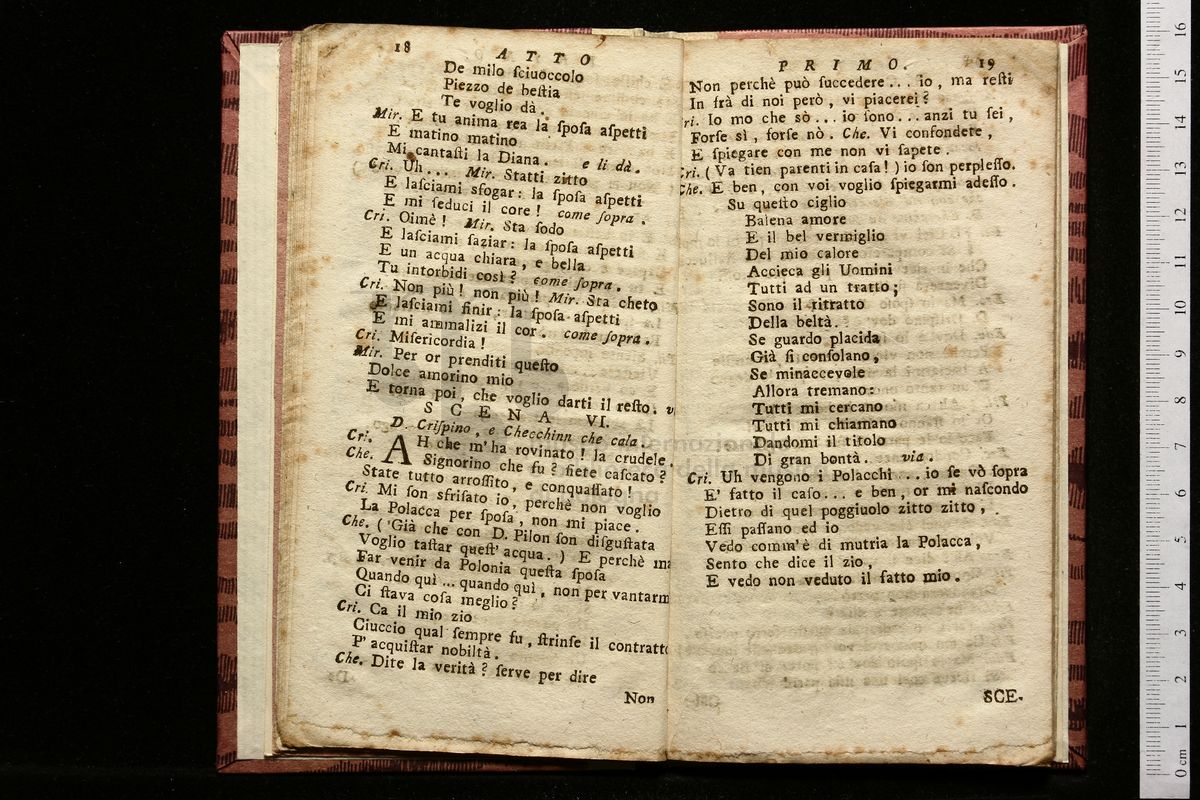 18
ATTO
De milo ſciuoccolo
Piezzo de beſtia
Te voglio dà.
Mir. E tu anima rea la ſpoſa aſpetti
E matino matino
Mi cantaſti la Diana. e li dà.
Cri. Uh... Mir. Statti zitto
E laſciami sfogar: la ſpoſa aſpetti
E mi ſeduci il core! come ſopra.
Cri. Oimè! Mir. Sta ſodo
E laſciami ſaziar: la ſpoſa aſpetti
E un acqua chiara, e bella
Tu intorbidi così? come ſopra.
Cri. Non più! non più! Mir. Sta cheto
E laſciami finir: la ſpoſa aſpetti
E mi ammalizi il cor. come ſopra.
Cri. Miſericordia!
Mir. Per or prenditi queſto
Dolce amorino mio
E torna poi, che voglio darti il reſto. v
SCENA VI.
D. Criſpino, e Checchinn che cala.
Cri. AH che m'ha rovinato! la crudele.
Che. Signorino che fu? ſiete caſcato?
State tutto arroſſito, e conquaſſato!
Cri. Mi ſon sfriſato io, perchè non voglio
La Polacca per ſpoſa, non mi piace.
Che. (Già che con D. Pilon ſon diſguſtata
Voglio taſtar queſt'acqua.) E perchè ma
Far venir da Polonia queſta ſpoſa
Quando quì... quando quì, non per vantarm
Ci ſtava coſa meglio?
Cri. Ca il mio zio
Ciuccio qual ſempre fu, ſtrinſe il contratto
P'acquiſtar nobiltà.
Che. Dite la verità? ſerve per dire
Non
PRIMO.
19
Non perchè può ſuccedere... io, ma reſti
In frà di noi però, vi piacerei?
ri. Io mo che sò... io ſono... anzi tu ſei,
Forſe sì, forſe nò. Che. Vi confondete,
E ſpiegare con me non vi ſapete.
Cri. (Va tien parenti in caſa!) io ſon perpleſſo.
Che. E ben, con voi voglio ſpiegarmi adeſſo.
Su queſto ciglio
Balena amore
E il bel vermiglio
Del mio calore
Accieca gli Uomini
Tutti ad un tratto;
Sono il ritratto
Della beltà.
Se guardo placida
Già ſi conſolano,
Se minaccevole
Allora tremano:
Tutti mi cercano
Tutti mi chiamano
Dandomi il titolo
Di gran bontà. via.
Cri. Uh vengono i Polacchi... io ſe vò ſopra
E' fatto il caſo... e ben, or mi naſcondo
Dietro di quel poggiuolo zitto zitto,
Eſſi paſſano ed io
Vedo comm'è di mutria la Polacca,
Sento che dice il zio,
E vedo non veduto il fatto mio.
SCE-